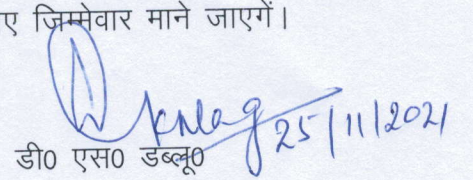 ए जिम्मेवार माने जाएगें।
25/11/2021
डी0 एस0 डब्लू0